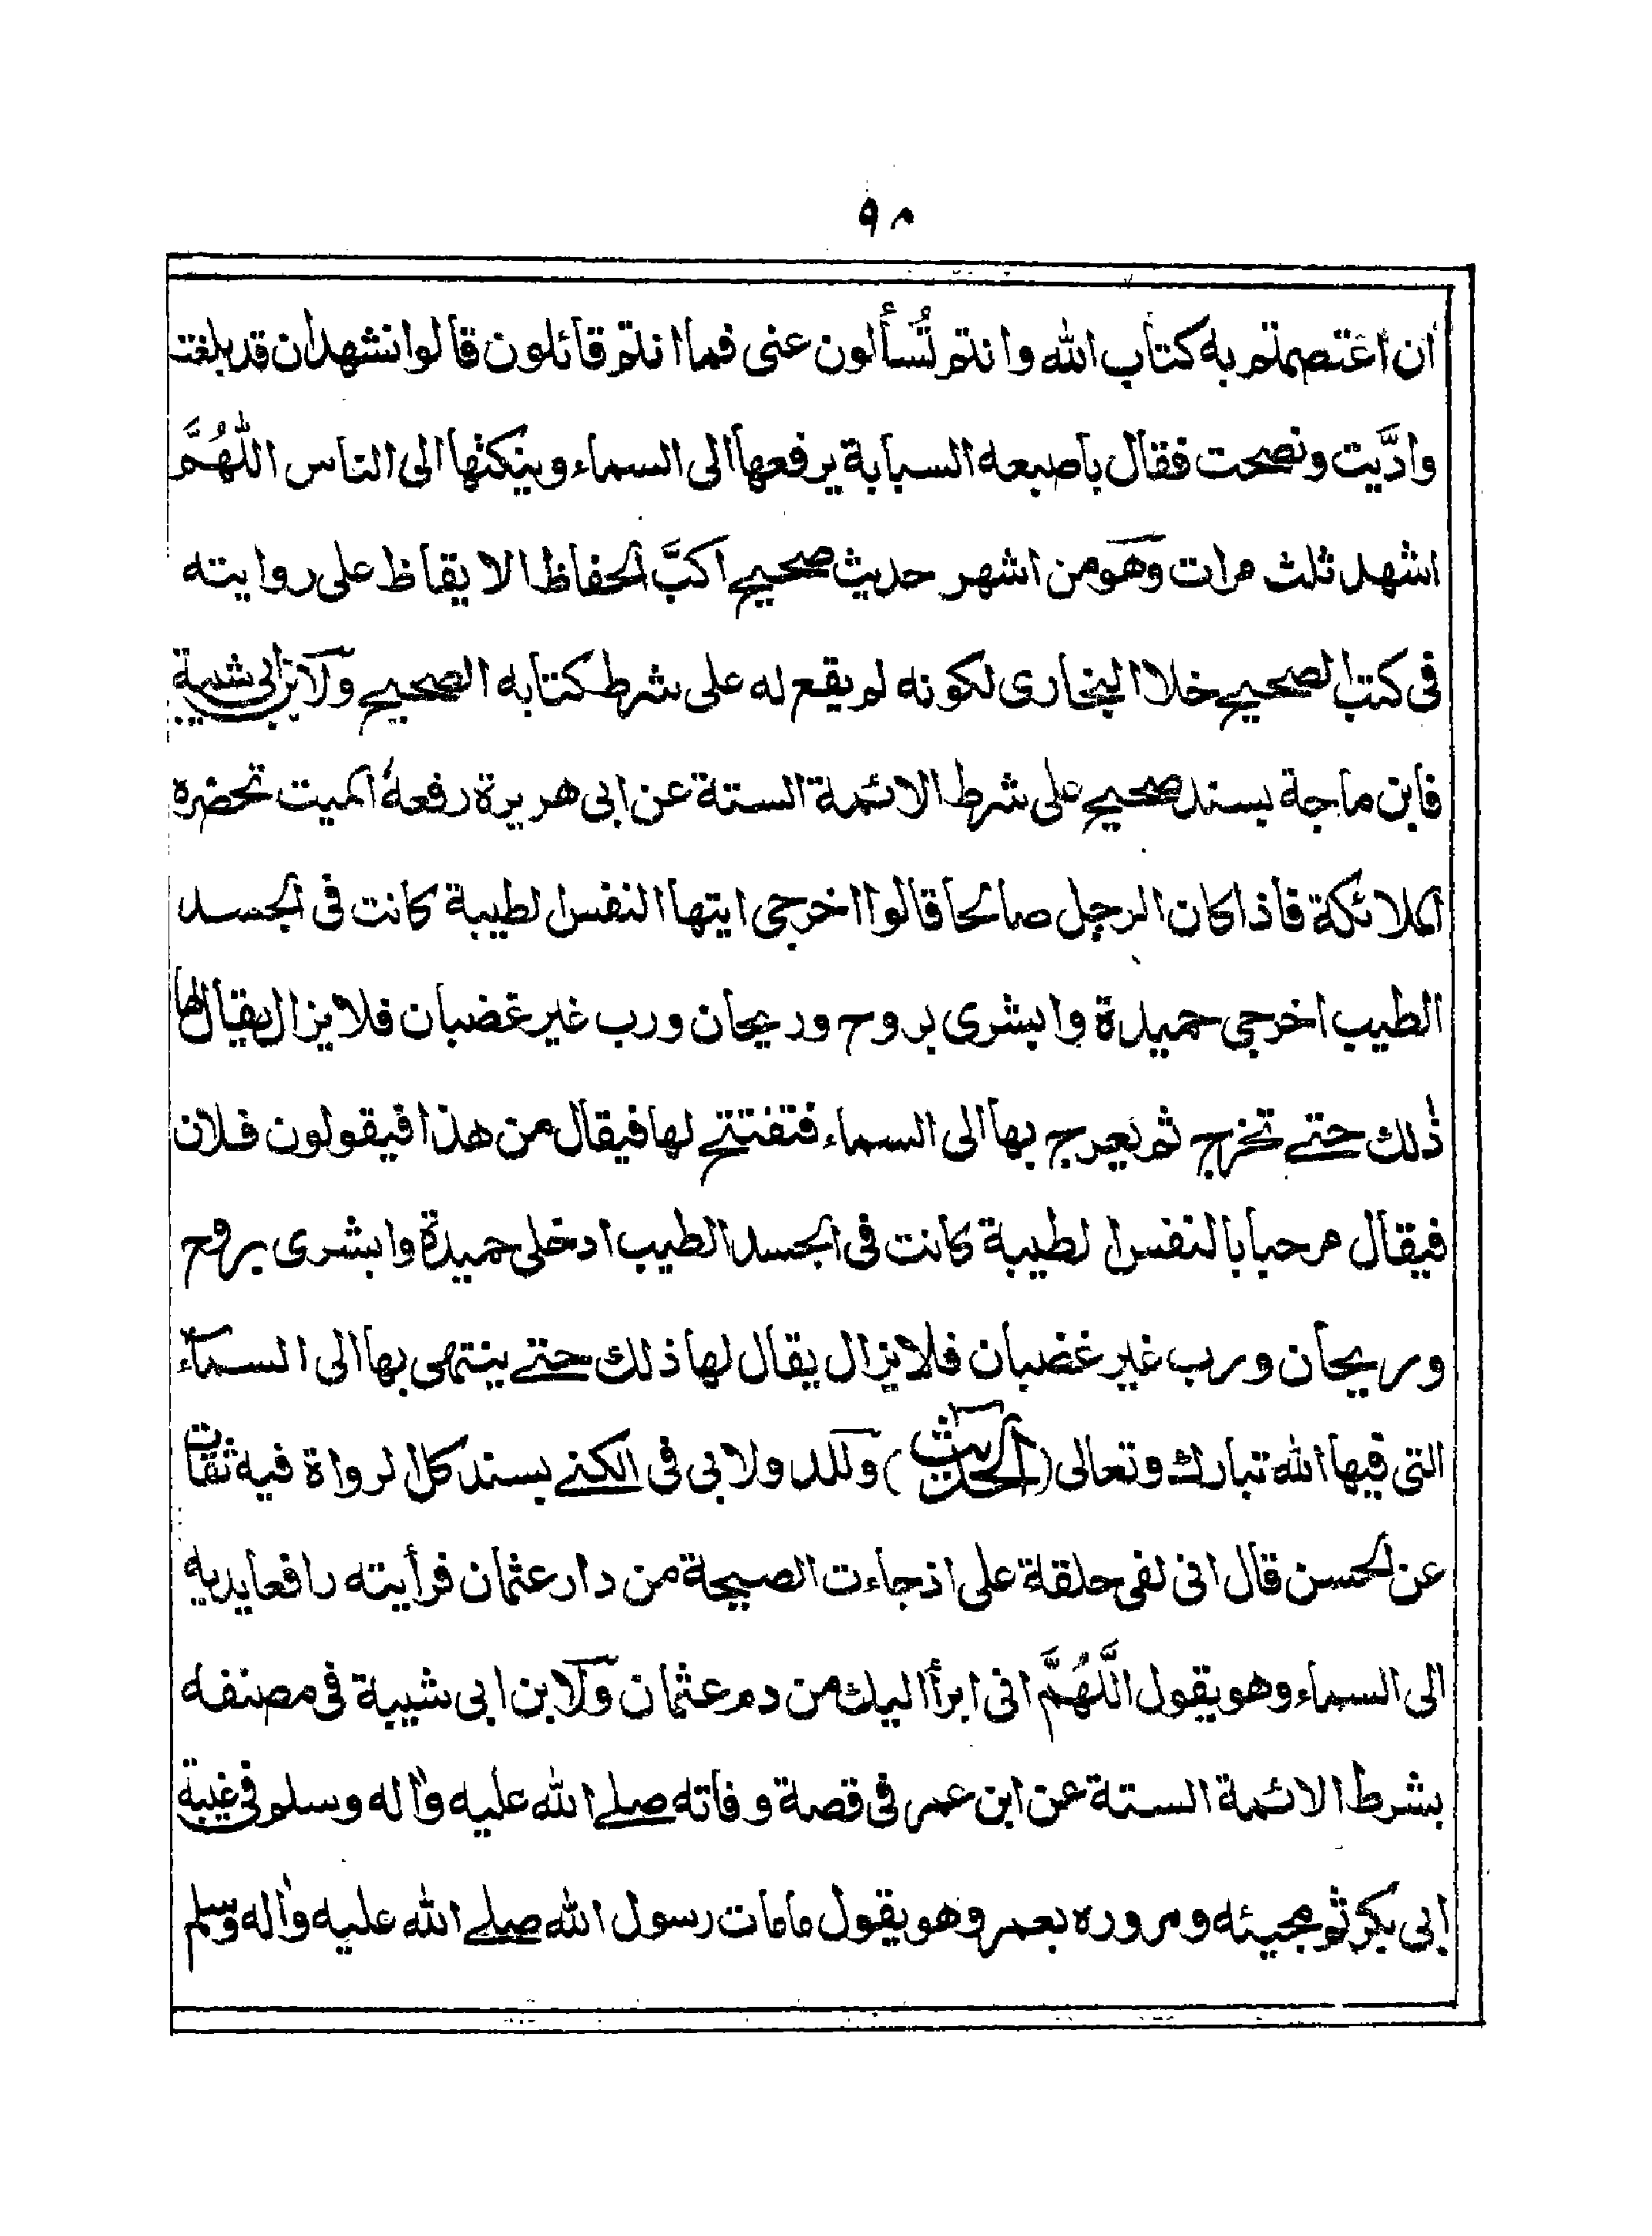 ٩٨
ان اعتصمتم به كتاب الله وانتم تُسألون عنى فما انتم قائلون قالوا نشهد ان قد بلغت
وادَّيت ونصحت فقال باصبعه السبابة يرفعها الى السماء وينكثها الى الناس اللّٰهُمَّ
اشهد ثلث مرات وهو من اشهر حديث صحيح اكبَّ الحفاظ الايقاظ على روايته
فى كتب الصحيح خلا البخارى لكونه لم يقع له على شرط كتابه الصحيح ولابن ابى شيبة
فابن ماجة بسند صحيح على شرط الائمة الستة عن ابى هريرة رفعهُ الميت تحضره
الملائكة فاذا كان الرجل صالحا قالوا اخرجى ايتها النفس الطيبة كانت فى الجسد
الطيب اخرجى حميدة وابشرى بروح وريحان ورب غير غضبان فلا يزال يقال لها
ذٰلك حتے تخرج ثم يعرج بها الى السماء فتفتتح لها فيقال من هذا فيقولون فلان
فيقال مرحبا بالنفس الطيبة كانت فى الجسد الطيب ادخلى حميدة وابشرى بروح
وريحان ورب غير غضبان فلا يزال يقال لها ذلك حتے ينتهى بها الى السماء
التى فيها الله تبارك وتعالى (الحديث) وللد ولابى فى الكنے بسند كل لرواة فيه ثقات
عن الحسن قال انى لفى حلقة على اذ جاءت الصيحة من دار عثمان فرأيته رافعا يديه
الى السماء وهو يقول اللَّهُمَّ انى ابرأ اليك من دم عثمان ولابن ابى شيبة فى مصنفه
بشرط الائمة الستة عن ابن عمر فى قصة وفاته صلے الله عليه واٰله وسلم فى غيبة
ابى بكر ثم مجيئه ومروره بعمر وهو يقول مامات رسول الله صلے الله عليه واٰله وسلم